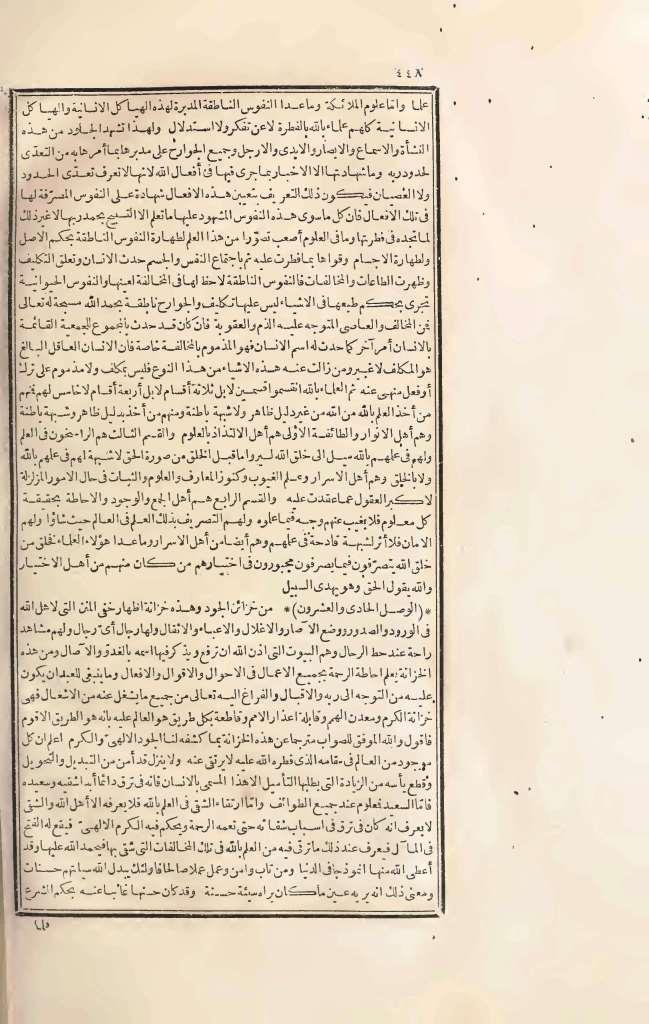 ٤٤٨
علما وأما علوم الملائكة وما عدا النفوس الناطقة المدبرة لهذه الهياكل الانسانية والهياكل
الانسانية كلهم علماء بالله بالفطرة لا عن تفكر ولا استدلال ولهذا تشهد الجلود من هذه
النشأة والاسماع والابصار والايدى والارجل وجميع الجوارح على مدبرها بما أمرها به من التعدى
لحدود ربه وما شهادتها الا الاخبار بما جرى فيها فى أفعال الله لانها لا تعرف تعدى الحدود
ولا العصيان فيكون ذلك التعريف بتعيين هذه الافعال شهادة على النفوس المصرفة لها
فى تلك الافعال فان كل ما سوى هذه النفوس المشهود عليها ما تعلم الا التسبيح بحمد ربها لا غير ذلك
لما تجده فى فطرتها وما فى العلوم أصعب تصورا من هذا العلم لطهارة النفوس الناطقة بحكم الاصل
ولطهارة الاجسام وقواها بما فطرت عليه ثم باجتماع النفس والجسم حدث الانسان وتعلق التكليف
وظهرت الطاعات والمخالفات فالنفوس الناطقة لا حظ لها فى المخالفة لعينها والنفوس الحيوانية
تجرى بحكم طبعها فى الاشياء ليس عليها تكليف والجوارح ناطقة بحمد الله مسبحة له تعالى
فمن المخالف والعاصى المتوجه عليه الذم والعقوبة فان كان قد حدث بالمجموع للجمعية القائمة
بالانسان أمر آخر كما حدث له اسم الانسان فهو المذموم بالمخالفة خاصة فان الانسان العاقل البالغ
هو المكلف لا غير ومن زالت عنه هذه الاشياء من هذا النوع فليس بمكلف ولا مذموم على ترك
أو فعل منهى عنه ثم العلماء بالله انقسموا قسمين لا بل ثلاثة أقسام لا بل أربعة أقسام لا خامس لهم فمنهم
من أخذ العلم بالله من الله من غير دليل ظاهر ولا شبهة باطنة ومنهم من أخذ بدليل ظاهر وشبهة باطنة
وهم أهل الانوار والطائفة الاولى هم أهل الالتذاذ بالعلوم والقسم الثالث هم الراسخون فى العلم
ولهم فى علمهم بالله ميل الى خلق الله ليروا ما قبل الخلق من صورة الحق لا شبهة لهم فى علمهم بالله
ولا بالخلق وهم أهل الاسرار وعلم الغيوب وكنوز المعارف والعلوم والثبات فى حال الامور المزلزلة
لا كبر العقول عما عقدت عليه والقسم الرابع هم أهل الجمع والوجود والاحاطة بحقيقة
كل معلوم فلا يغيب عنهم وجه فيما علموه ولهم التصريف بذلك العلم فى العالم حيث شاؤا ولهم
الامان فلا أثر لشبهة قادحة فى علمهم وهم أيضا من أهل الاسرار وما عدا هؤلاء العلماء فخلق من
خلق الله يتصرفون فيما يصرفون مجبورون فى اختيارهم من كان منهم من أهل الاختيار
والله يقول الحق وهو يهدى السبيل
* (الوصل الحادى والعشرون) * من خزائن الجود وهذه خزانة اظهار خفى المنن التى لاهل الله
فى الورود والصدور ووضع الآصار والاغلال والاعباء والاثقال ولها رجال أى رجال ولهم مشاهد
راحة عند حط الرحال وهم البيوت التى أذن الله أن ترفع ويذكر فيها اسمه بالغدو والآصال ومن هذه
الخزانة يعلم احاطة الرحمة بجميع الاعمال فى الاحوال والاقوال والافعال وما ينبغى للعبد أن يكون
عليه من التوجه الى ربه والاقبال والفراغ اليه تعالى من جميع ما يشغل عنه من الاشغال فهى
خزانة الكرم ومعدن الهمم وقابلة اعذار الامم وقاطعة بكل طريق هو العالم عليه بانه هو الطريق الاقوم
فاقول والله الموفق للصواب مترجما عن هذه الخزانة بما كشفه لنا الجود الالهى والكرم اعلم ان كل
موجود من العالم فى مقامه الذى فطره الله عليه لا يرتقى عنه ولا ينزل قد أمن من التبديل والتحويل
وقطع يأسه من الزيادة التى يطلبها التأميل الا هذا المسمى بالانسان فانه فى ترق دائما أبدا شقيه وسعيده
فاما السعيد فمعلوم عند جميع الطوائف واما ارتقاء الشقى فى العلم بالله فلا يعرفه الا أهل الله والشقى
لا يعرف انه كان فى ترق فى اسباب شقائه حتى تعمه الرحمة ويحكم فيه الكرم الالهى فيقع له الفتح
فى المآل فيعرف عند ذلك ما ترقى فيه من العلم بالله فى تلك المخالفات التى شقى بها فيحمد الله عليها وقد
أعطى الله منها انموذجا فى الدنيا ومن تاب وآمن وعمل عملا صالحا فاولئك يبدل الله سيآتهم حسنات
ومعنى ذلك انه يريه عين ما كان يراه سيئة حسنة وقد كان حسنها غائبا عنه بحكم الشرع